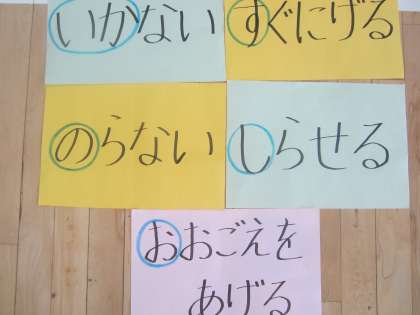 いかない
すぐにげる
のらない
しらせる
おおごえを
あげる